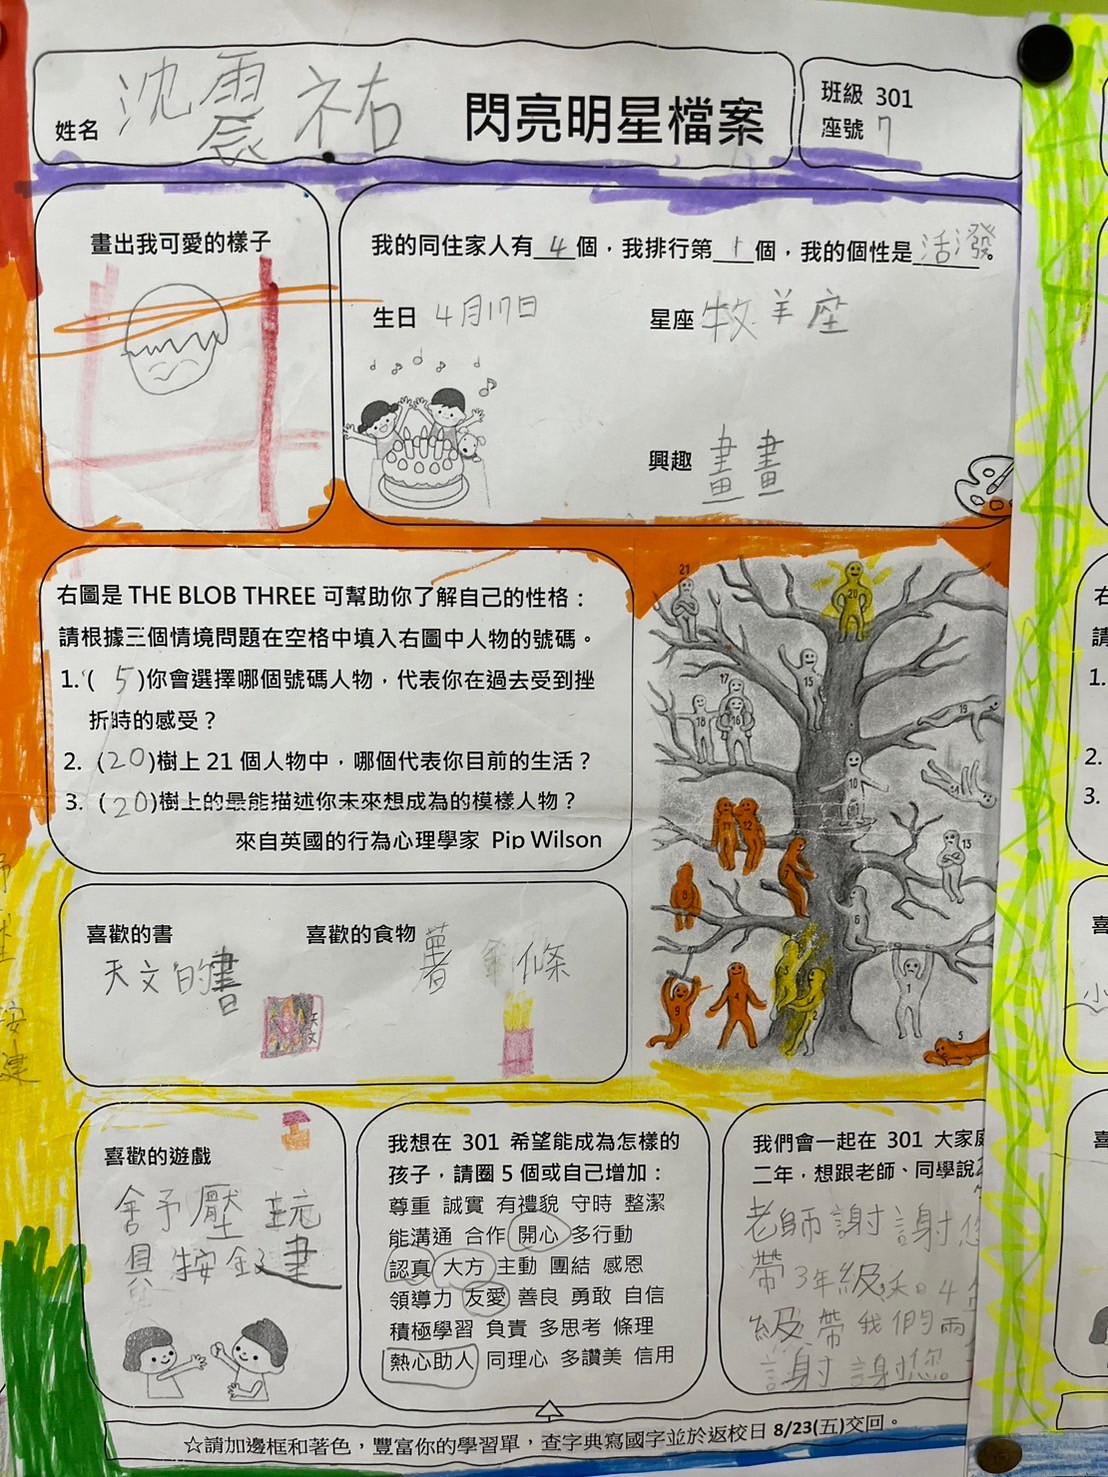 姓名 沈震祐
閃亮明星檔案
班級 301
座號 7
畫出我可愛的樣子
我的同住家人有 4 個，我排行第 1 個，我的個性是 活潑。
生日 4月17日
星座 牧羊座
興趣 畫畫
右圖是 THE BLOB THREE 可幫助你了解自己的性格：
請根據三個情境問題在空格中填入右圖中人物的號碼。
1.( 5 )你會選擇哪個號碼人物，代表你在過去受到挫
折時的感受？
2. (20)樹上 21 個人物中，哪個代表你目前的生活？
3. (20)樹上的最能描述你未來想成為的模樣人物？
來自英國的行為心理學家 Pip Wilson
21
20
17
15
18
16
19
14
10
11
12
13
7
8
6
3
1
9
4
2
5
喜歡的書
天文的書
天文
喜歡的食物
薯條
喜歡的遊戲
舒壓玩
具按鍵
我想在 301 希望能成為怎樣的
孩子，請圈 5 個或自己增加：
尊重 誠實 有禮貌 守時 整潔
能溝通 合作 開心 多行動
認真 大方 主動 團結 感恩
領導力 友愛 善良 勇敢 自信
積極學習 負責 多思考 條理
熱心助人 同理心 多讚美 信用
我們會一起在 301 大家庭
二年，想跟老師、同學說
老師謝謝您
帶3年級和4年
級帶我們兩
謝謝您。
☆請加邊框和著色，豐富你的學習單，查字典寫國字並於返校日 8/23(五)交回。
右
請
1.
2.
3.
喜
小
喜